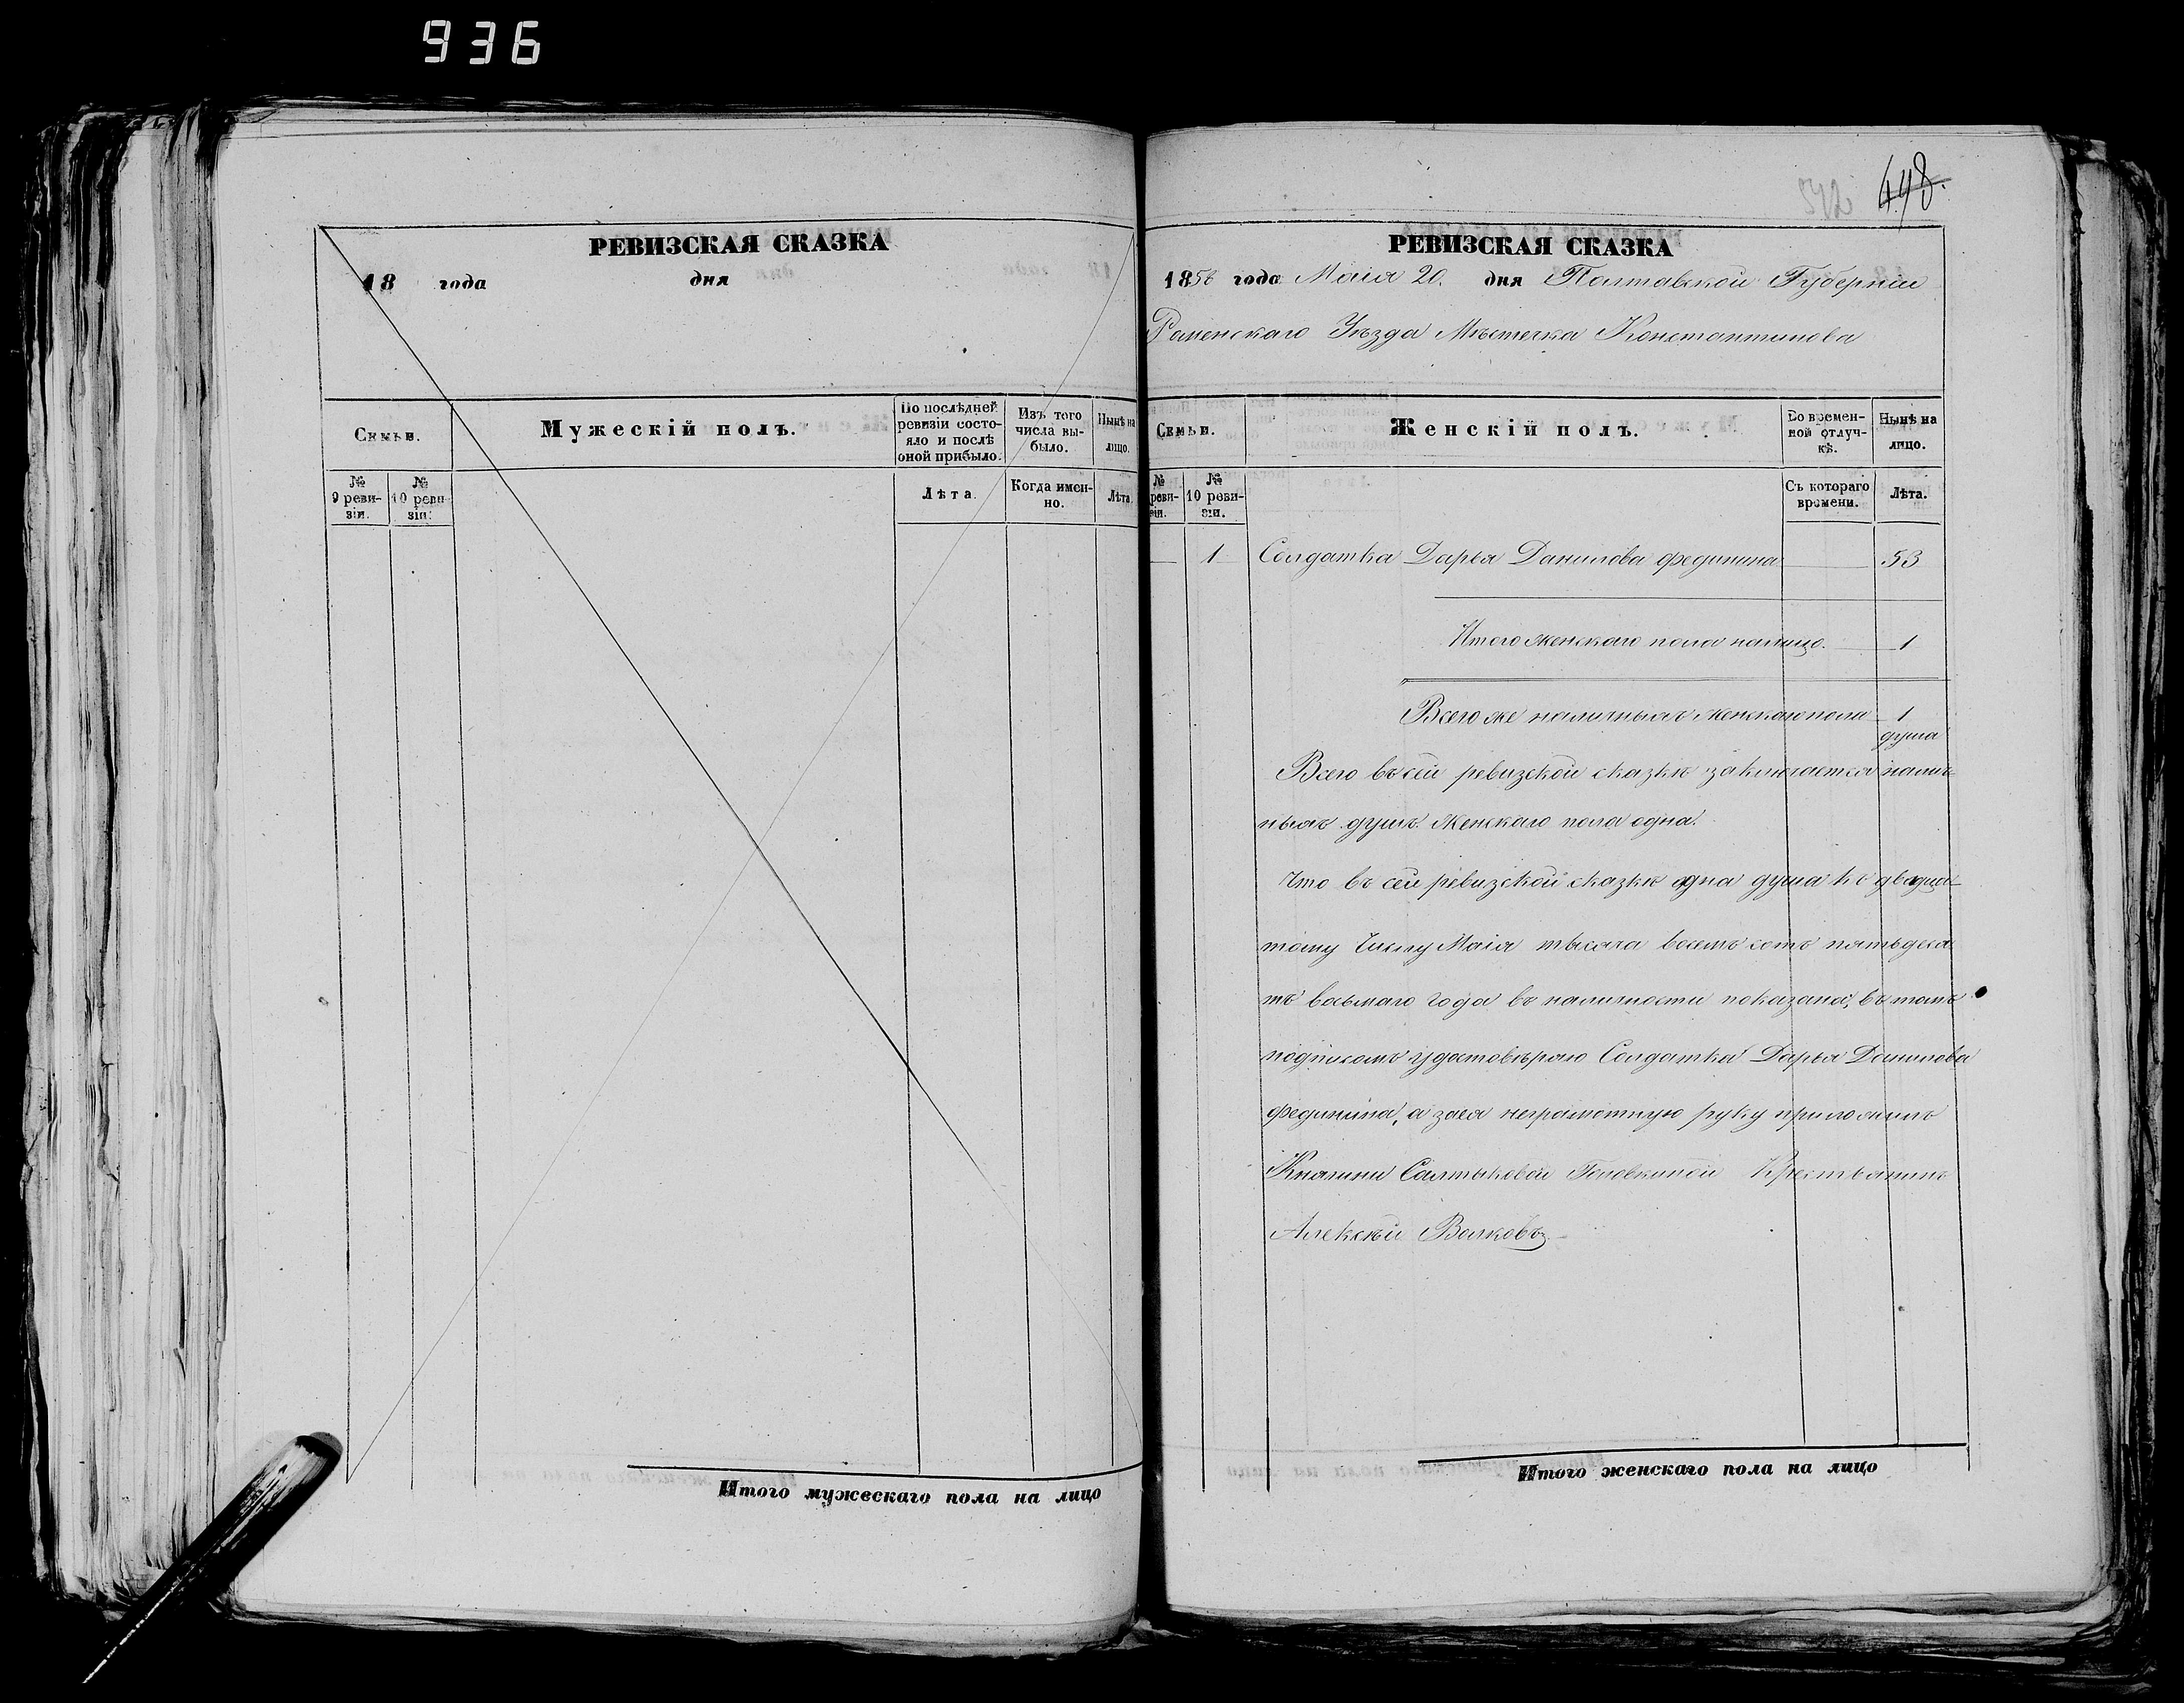 936
РЕВИЗСКАЯ СКАЗКА
18 года дня
Семьи.
Мужескій полъ.
По послѣдней ревизіи состояло и послѣ оной прибыло.
Изъ того числа выбыло.
Нынѣ на лицо.
№ 9 ревизіи.
№ 10 ревизіи.
Лѣта.
Когда именно.
Лѣта.
Итого мужескаго пола на лицо
542 498.
РЕВИЗСКАЯ СКАЗКА
1858 года Маія 20. дня Полтавской Губерніи
Роменскаго Уѣзда Мѣстечка Константинова
Семьи.
Женскій полъ.
Во временной отлучкѣ.
Нынѣ на лицо.
№ реви-зіи.
№ 10 ревизіи.
Съ котораго времени.
Лѣта.
1 Солдатка Дарья Данилова Фединина 53
Итого женскаго пола налицо. 1
Всего же наличныхъ женскаго пола 1
душа
Всего въ сей ревизской сказкѣ заключается налич-
ныхъ душъ женскаго пола одна.
Что въ сей ревизской сказкѣ одна душа къ двадца-
тому числу Маія тысяча восемь сотъ пятьдеся
тъ восьмаго года въ наличности показана, въ томъ
подписомъ удостовѣряю Солдатка Дарья Данилова
Фединина, а за ея неграмотную руку приложилъ
Княгини Салтыковой Головкиной Крестьянинъ
Алексѣй Волковъ
Итого женскаго пола на лицо